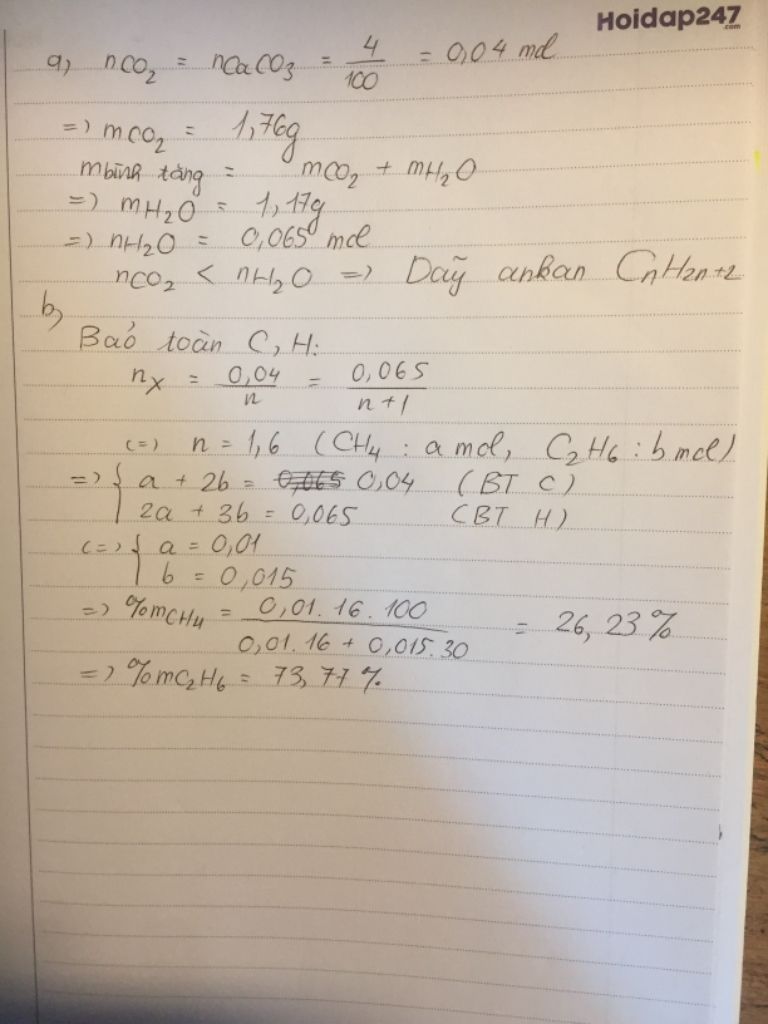 Hoidap247
.com
a) nCO₂ = nCaCO₃ = 4/100 = 0,04 mol
=> mCO₂ = 1,76g
mbình tăng = mCO₂ + mH₂O
=> mH₂O = 1,17g
=> nH₂O = 0,065 mol
nCO₂ < nH₂O => Dãy ankan CnH2n+2
b)
Bảo toàn C, H:
nX = 0,04/n = 0,065/n+1
<=> n = 1,6 (CH₄ : a mol, C₂H₆ : b mol)
=> { a + 2b = 0,065 0,04 (BT C)
2a + 3b = 0,065 (BT H)
<=> { a = 0,01
b = 0,015
=> %mCH₄ = 0,01.16.100/0,01.16 + 0,015.30 = 26,23%
=> %mC₂H₆ = 73,77%